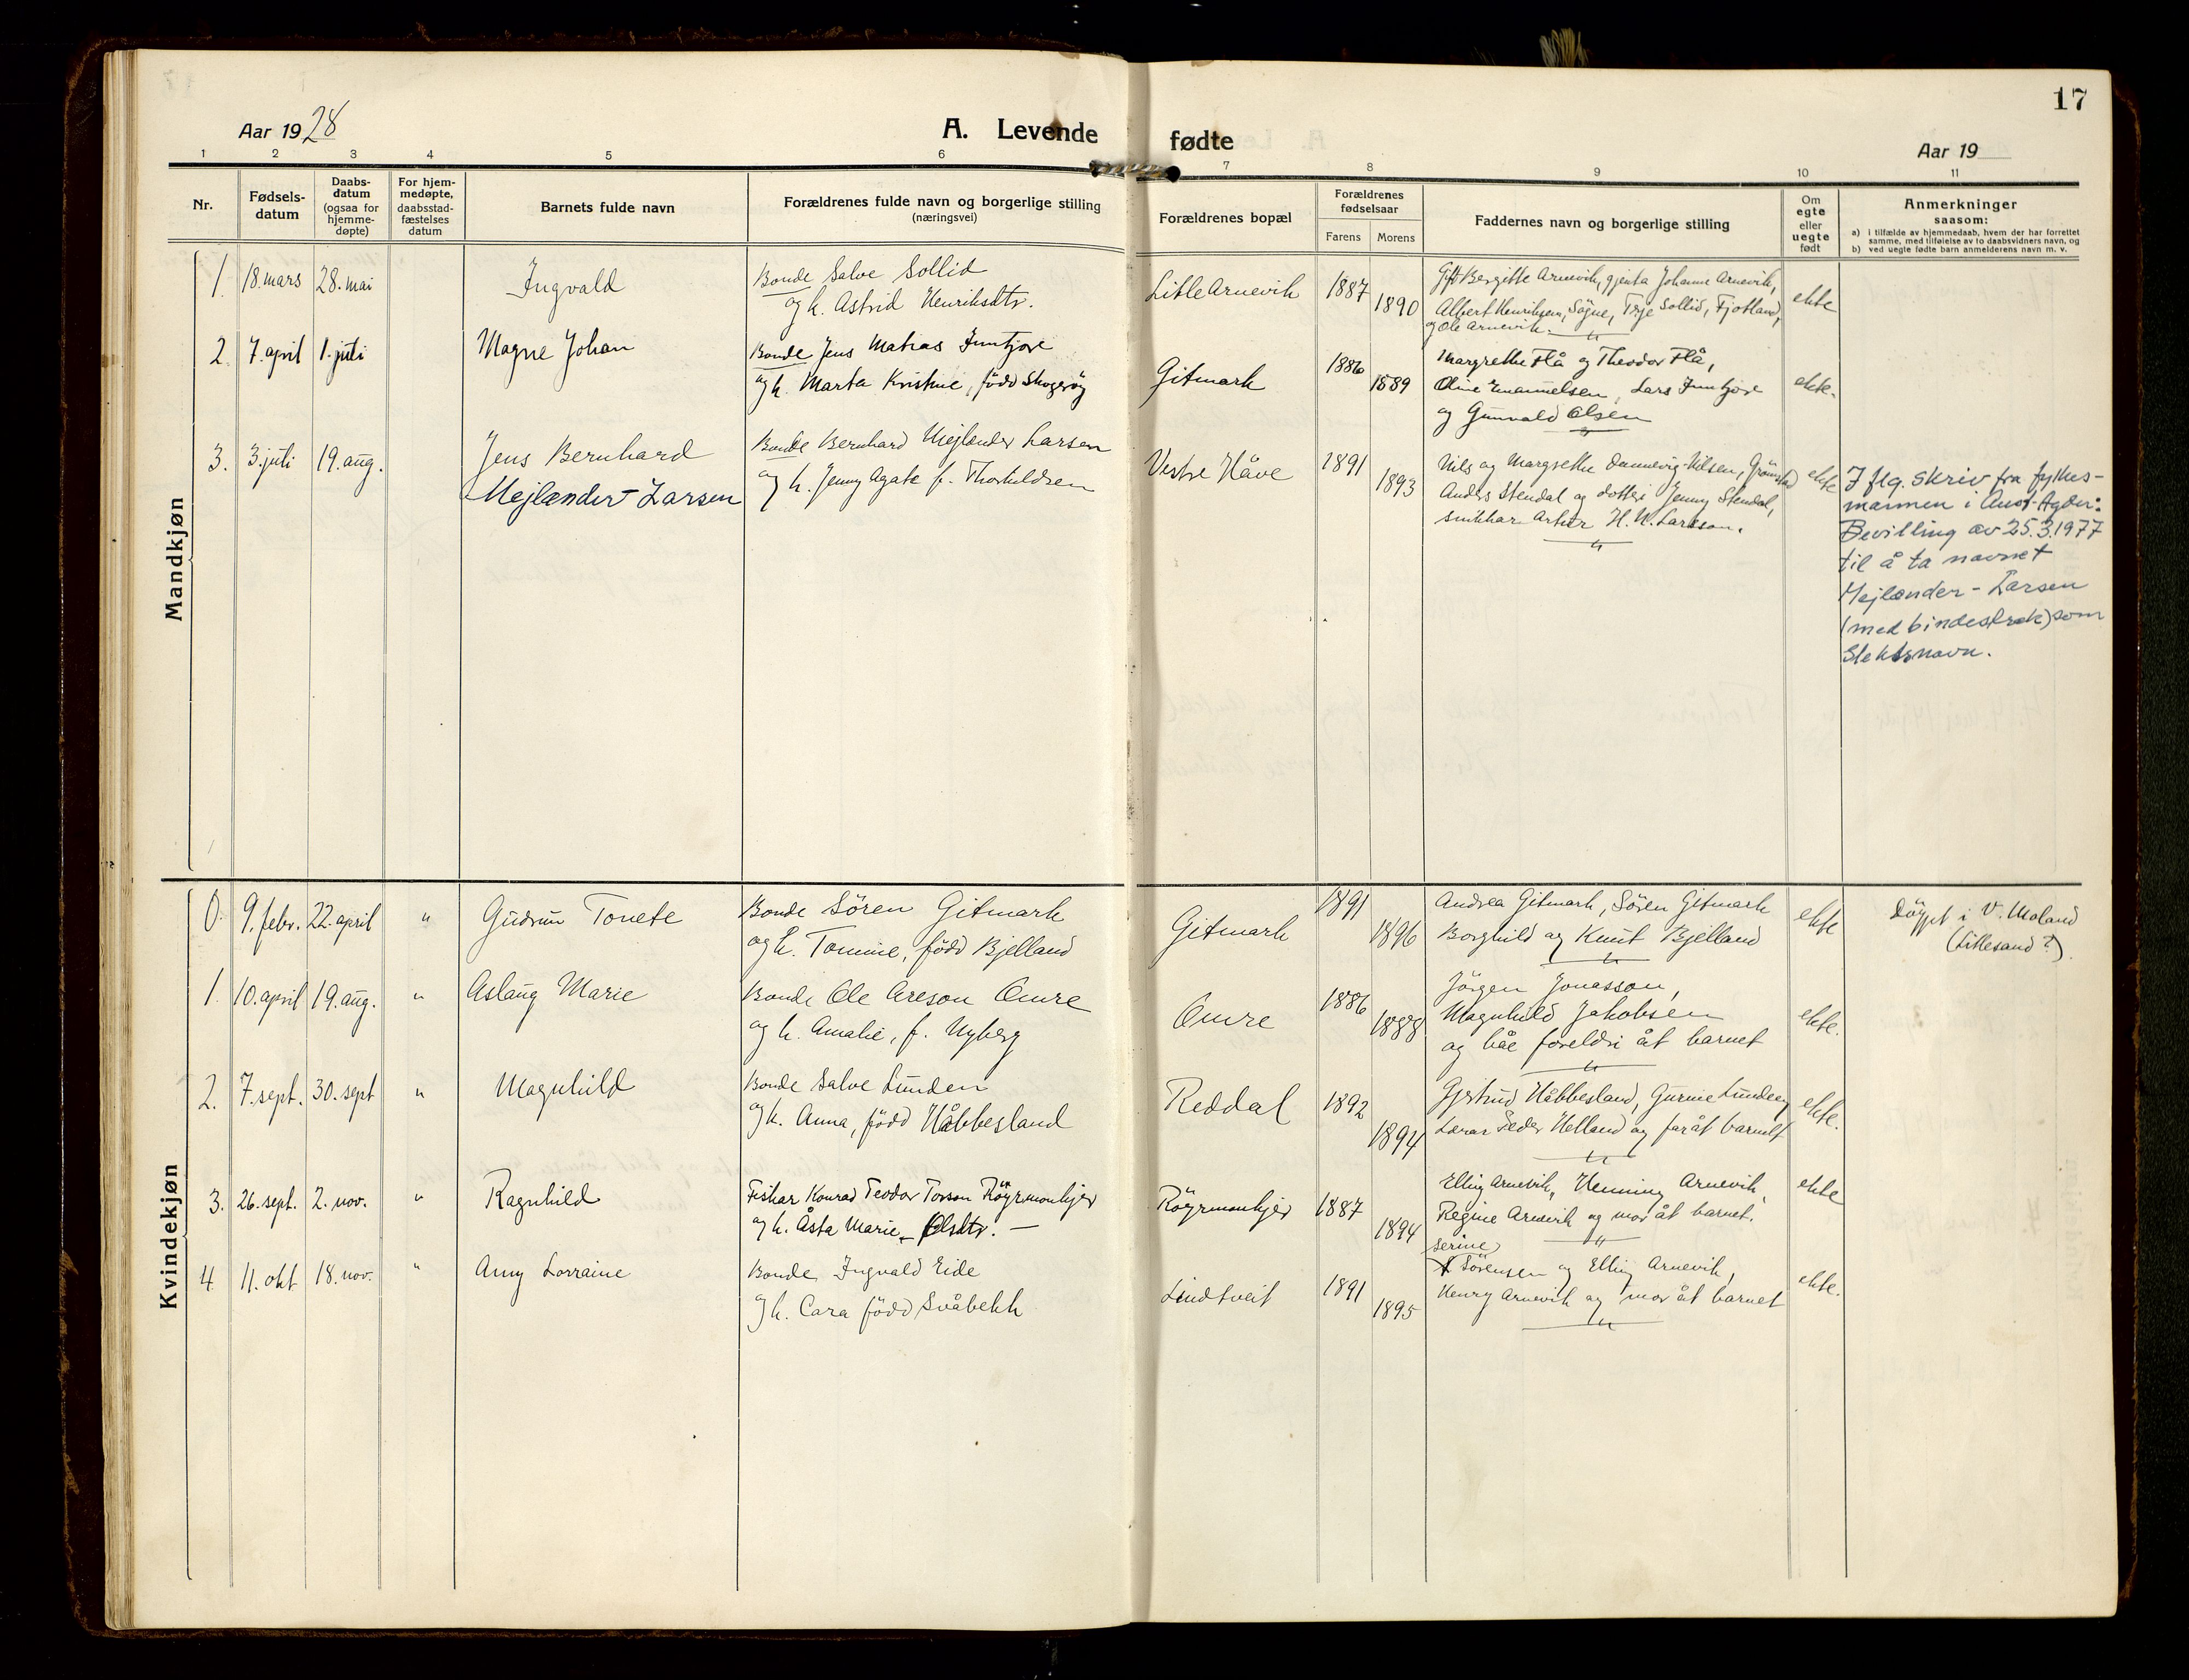 17
Aar 1928
A. Levende fødte
Aar 19
1 2 3 4 5 6 7 8 9 10 11
Nr.
Fødsels-
datum
Daabs-
datum
(ogsaa for
hjemme-
døpte)
For hjem-
medøpte,
daabsstad-
fæstelses
datum
Barnets fulde navn
Forældrenes fulde navn og borgerlige stilling
(næringsvei)
Forældrenes bopæl
Forældrenes
fødselsaar
Farens Morens
Faddernes navn og borgerlige stilling
Om
egte
eller
uegte
født
Anmerkninger
saasom:
a) i tilfælde av hjemmedaab, hvem der har forrettet
samme, med tilføielse av to daabsvidners navn, og
b) ved uegte fødte barn anmelderens navn m. v.
Mandkjøn
1. 18. mars 28. mai Ingvald
Bonde Salve Sollid
og h. Astrid Henriksdtr.
Litle Arnevik 1887 1890
Gift Bergitte Arnevik, gjenta Johanne Arnevik,
Albert Henriksen, Søgne, Terje Sollid, Fjotland,
og Ole Arnevik.
ekte
2. 7. april 1. juli Magne Johan
Bonde Jens Matias Inntjore
og h. Marta Kristine, född Skogeröy
Gitmark 1886 1889
Margrethe Flå og Theodor Flå,
Oline Emanuelsen, Lars Inntjore
og Gunvald Olsen
ekte.
3. 3. juli 19. aug. Jens Bernhard
Mejlænder-Larsen
Bonde Bernhard Mejlænder Larsen
og h. Jenny Agate f. Thorkildsen
Vestre Håve 1891 1893
Nils og Margrethe Dannevig-Nilsen, Grömstad
Anders Stendal og dotter Jenny Stendal,
snikkar Artur H. W. Larsson.
ekte
I flg. skriv fra fylkes-
mannen i Aust-Agder:
Bevilling av 25.3.1977
til å ta navnet
Mejlænder-Larsen
(med bindestrek) som
slektsnavn.
Kvindekjøn
0. 9. febr. 22. april " Gudrun Tonete
Bonde Sören Gitmark
og h. Tomine, född Bjelland
Gitmark 1891 1896
Andrea Gitmark, Sören Gitmark
Borghild og Knut Bjelland
ekte
Döypt i V. Moland
(Lillesand?).
1. 10. april 19. aug. " Aslaug Marie
Bonde Ole Areson Omre
og h. Amalie, f. Nyberg
Omre 1886 1888
Jörgen Jonasson,
Magnhild Jakobsen
og båe foreldri åt barnet
ekte.
2. 7. sept. 30. sept " Magnhild
Bonde Salve Lunden
og h. Anna, född Håbbesland
Reddal 1892 1894
Gjertrud Håbbesland, Gurine Lunden,
Lærar Peder Helland og far åt barnet
ekte.
3. 26. sept. 2. nov. " Ragnhild
Fiskar Konrad Teodor Torson Röyrmonkjer
og h. Åsta Marie Olsdtr.
Röyrmonkjer 1887 1894
Elling Arnevik, Henning Arnevik,
Regine Arnevik og mor åt barnet.
ekte
4. 11. okt 18. nov. " Anny Lorraine
Bonde Ingvald Eide
og h. Cara född Svåbekk
Lindtveit 1891 1895
Serine
Sörensen og Elling Arnevik,
Henry Arnevik og mor åt barnet
ekte.